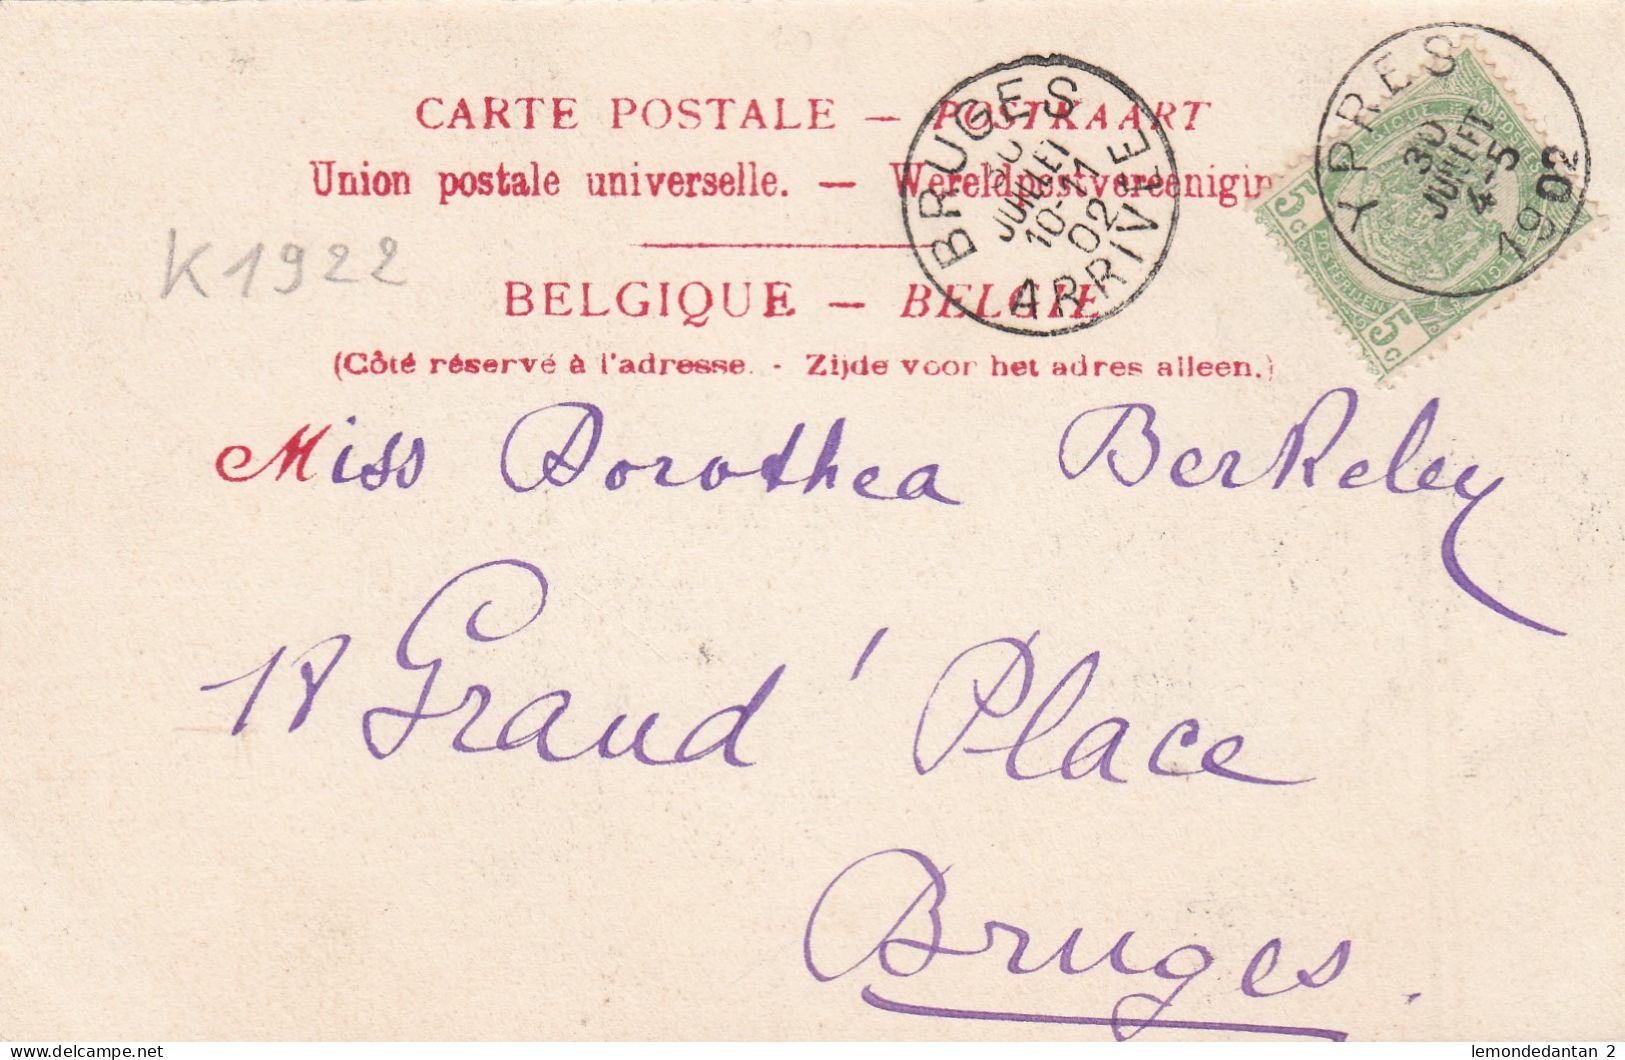 CARTE POSTALE — POSTKAART
Union postale universelle. — Wereldpostvereenigin
BELGIQUE — BELGIE
(Côté réservé à l'adresse. - Zijde voor het adres alleen.)
BRUGES
30
JUILLET
10-11
02
ARRIVEE
YPRES
30
JUILLET
4-5
1902
5c
5c
K1922
Miss Dorothea Berkeley
18 Grand' Place
Bruges.
lemondedantan 2